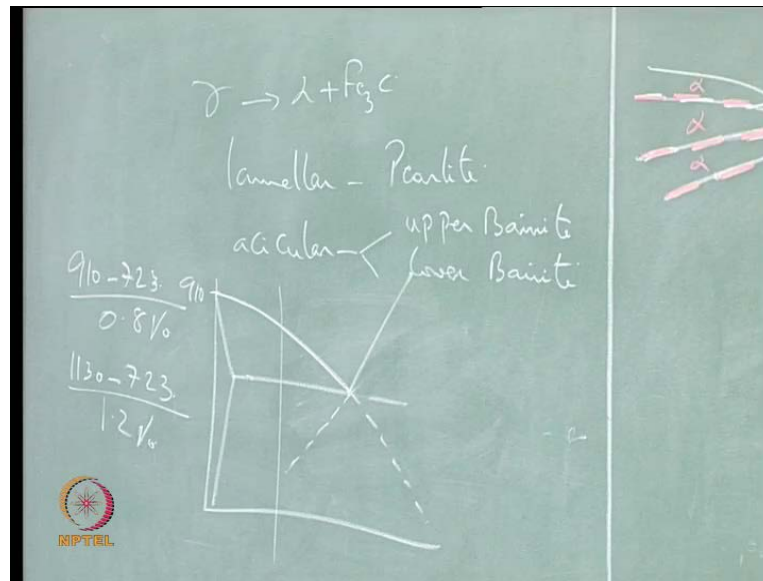 γ → α + Fe₃C
lamellar - Pearlite
acicular - upper Bainite
Lower Bainite
910 - 723
0.8 %
1130 - 723
1.2 %
910
α
α
α
NPTEL